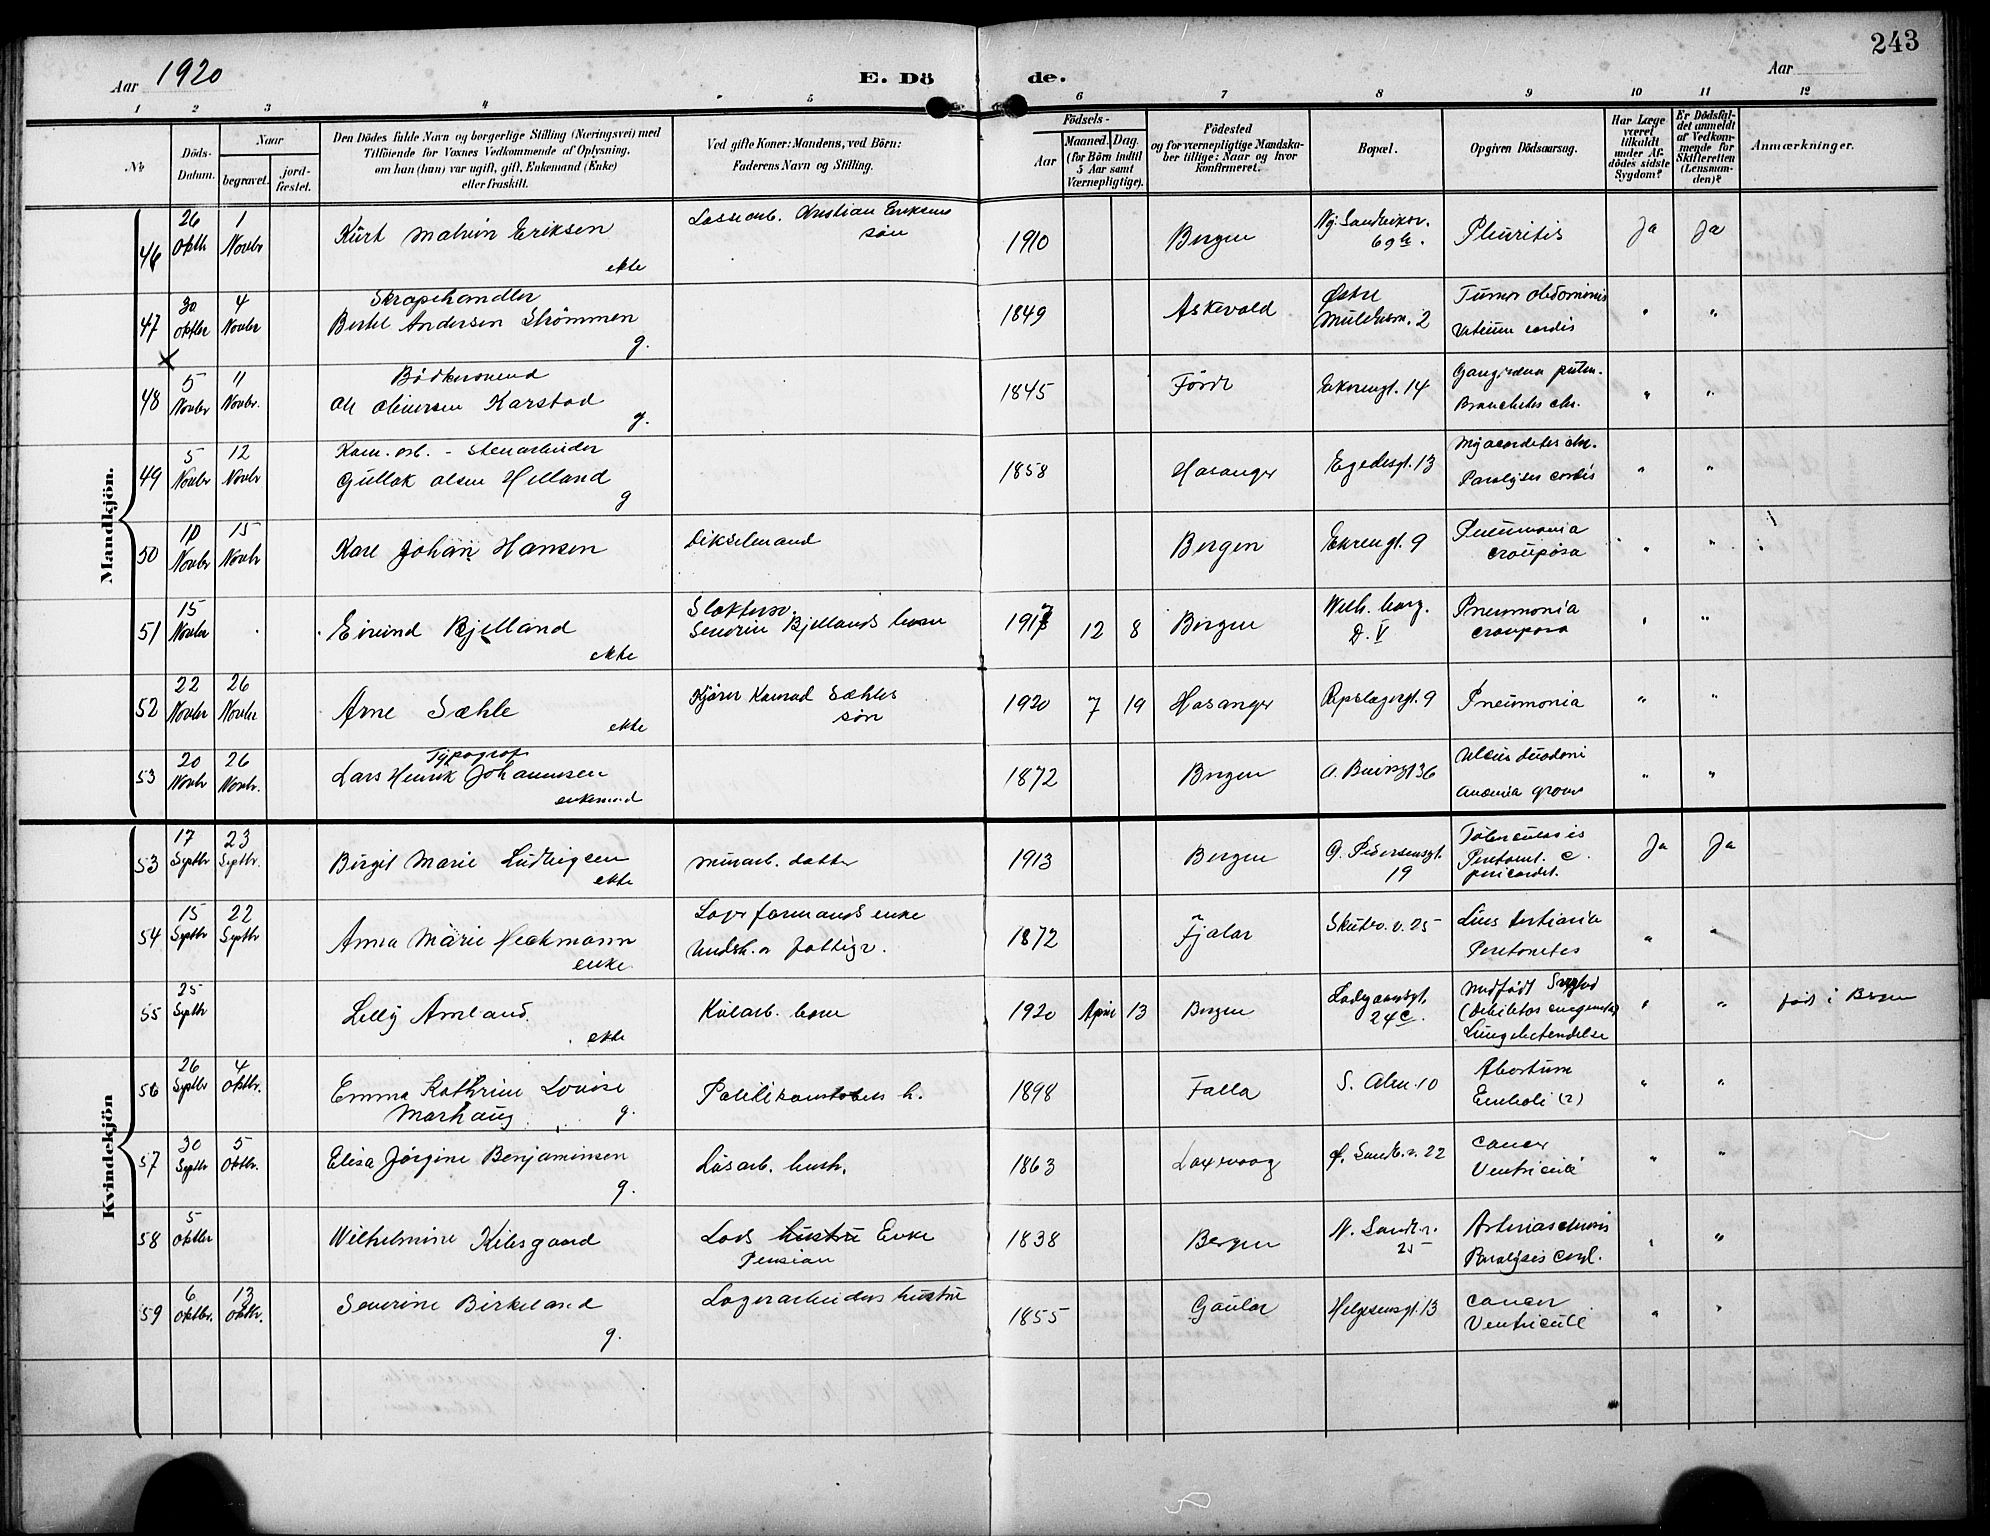 243
Aar 1920
E. Dö de.
Aar
1 2 3 4 5 6 7 8 9 10 11 12
No
Döds-Datum.
Naar
begravet.
jord-fæstet.
Den Dödes fulde Navn og borgerlige Stilling (Næringsvei) med
Tilföiende for Voxnes Vedkommende af Oplysning,
om han (hun) var ugift, gift, Enkemand (Enke)
eller fraskilt.
Ved gifte Koner: Mandens, ved Börn:
Faderens Navn og Stilling.
Födsels-
Aar
Maaned. Dag.
(for Börn indtil
5 Aar samt
Værnepligtige).
Födested
og for værnepligtige Mandska-
ber tillige: Naar og hvor
konfirmeret.
Bopæl.
Opgiven Dödsaarsag.
Har Læge
været
tilkaldt
under Af-
dödes sidste
Sygdom?
Er Dödsfal-
det anmeldt
af Vedkom-
mende for
Skifteretten
(Lensman-
den)?
Anmærkninger.
Mandkjön.
46 26 Oktbr 1 Novbr Kurt Malvin Eriksen ekte Kristian Eriksens søn 1910 Bergen Ny. Sandviksv. 69 b. Pleuritis Ja Ja
47 30 Oktbr 4 Novbr Skraphandler Bertel Andersen Strømmen g. 1849 Askevold Østre Muleksm. 2 Tumor abdominis Vitium cordis " "
48 5 Novbr 11 Novbr. Bødkersvend Ole Oliversen Karstad g. 1845 Førde Ekrengt. 14 Gangræna pulm. Bronchitis chr. " "
49 5 Novbr 12 Novbr Kom. arb. - Stenarbeider Gullak Olsen Helland g 1858 Hosanger Egedesgt. 13 Myocarditis chr. Paralysis cordis " "
50 10 Novbr 15 Novbr Karl Johan Hansen Dikselmand Bergen Ekrengt. 9 Pneumonia crouposa " "
51 15 Novbr Eivind Bjelland ekte Severin Bjellands barn 12 8 Bergen D. V Pneumonia crouposa " "
52 22 Novbr 26 Novbr Arne Sæhle ekte Kjører Konrad Sæhles søn 1920 7 19 Hosanger Repslagergt. 9 Pneumonia " "
53 20 Novbr 26 Novbr. Typograf Lars Henrik Johannesen enkemand 1872 Bergen Ulcus duodeni Anæmia gravis " "
Kvindekjön
53 17 Septbr 23 Septbr. Birgit Marie Ludvigsen ekte Murarb. datter 1913 Bergen G. Pedersensgt. 19 Tuberculosis Peritonit. c. pericardit. Ja Ja
54 15 Septbr 22 Septbr Anna Marie Heckmann enke Lagerformands enke Undsk. av fattigv. 1872 Fjalar Skutev. v. 25 Lues tertiaria Peritonitis " "
55 25 Septbr Lilly Amland. ekte Kularb. barn 1920 April 13 Bergen Ladegaardsgt. 24 C. Medfødt Svaghed (Debilitas congenita) Lungebetendelse " " født i Bergen
56 26 Septbr 4 Oktbr. Emma Kathrine Louise Marhaug g. Politikonstabels h. 1898 Falla S. Alm. 10 Abortum Emboli (?) " "
57 30 Septbr 5 Oktbr. Elisa Jørgine Benjaminsen g. Løsarb. hust. 1863 Laxevaag Ø. Sandv. v. 22 Cancer Ventriculi " "
58 5 Oktbr Wilhelmine Kilsgaard Lods hustru Enke Pension 1838 Bergen N. Sandv. v. 25 Arteriosclerosis Paralysis " "
59 6 Oktbr. 13 Oktbr. Severine Birkeland g. Lagerarbeiders hustru 1855 Gaular Helgesensgt. 13 Cancer Ventriculi " "